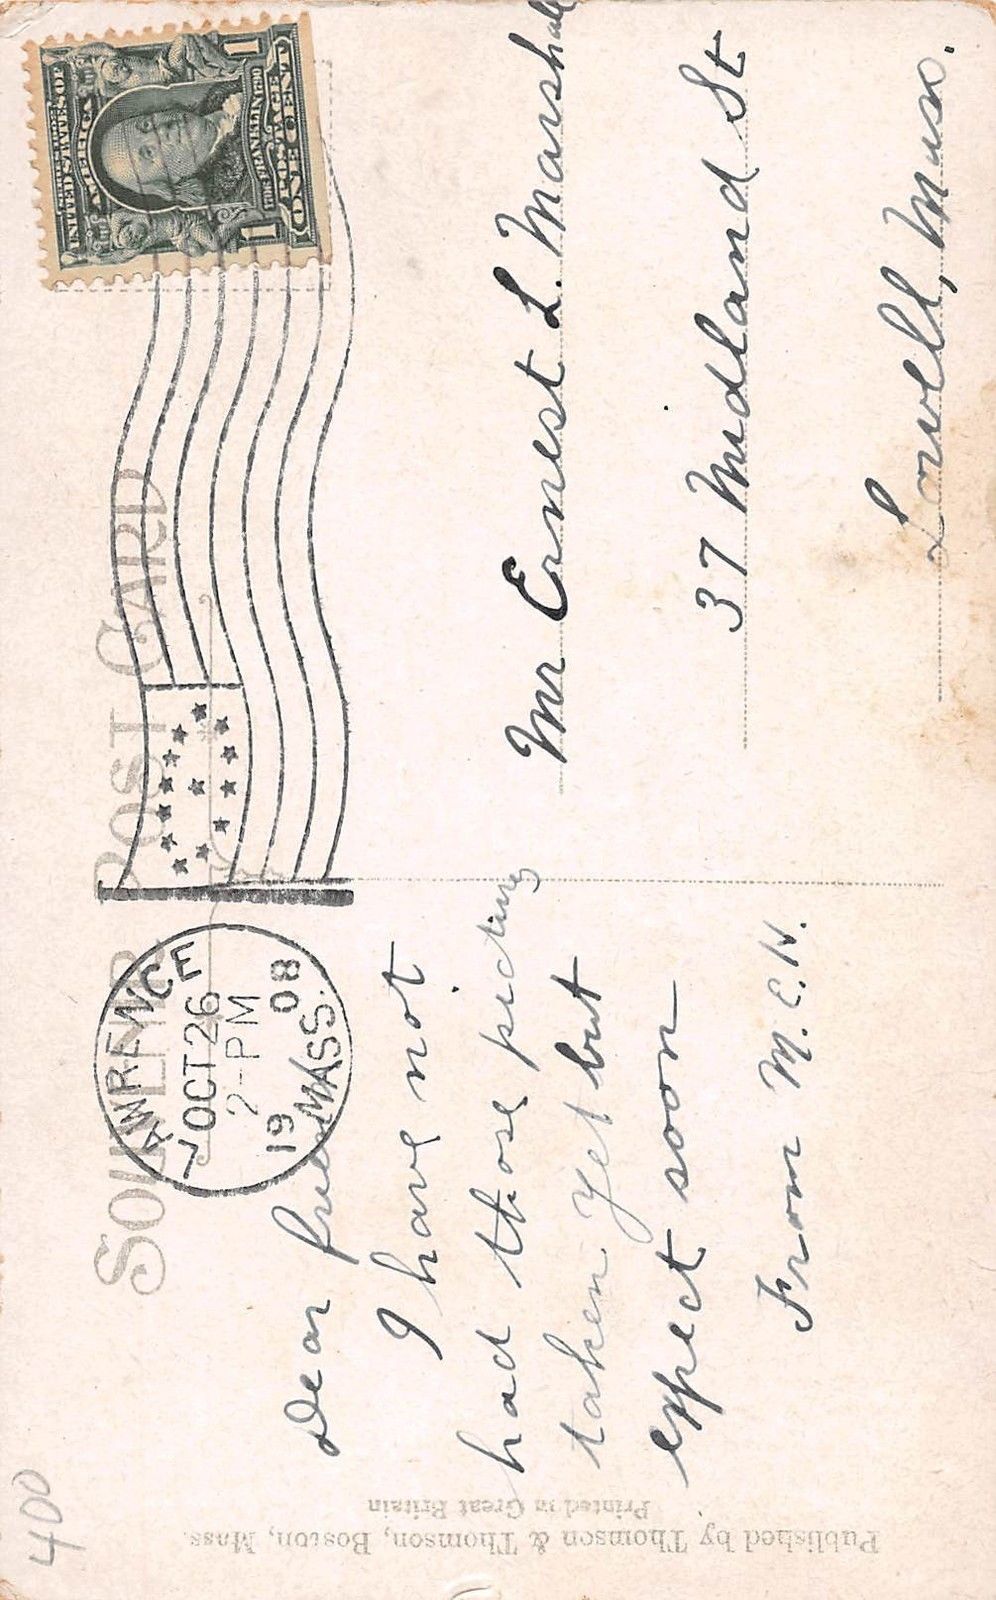 SOUVENIR POST CARD
LAWRENCE
OCT 26
2-PM
1908
MASS.
UNITED STATES OF AMERICA
SERIES 1902
1706 FRANKLIN 1790
POSTAGE
ONE CENT
1 1
Dear friend
I have not
had those pictures
taken yet but
expect soon
From M.C.H.
Mr Ernest L. Marshall
37 Midland St
Lowell, Mass.
Published by Thomson & Thomson, Boston, Mass.
Printed in Great Britain
400